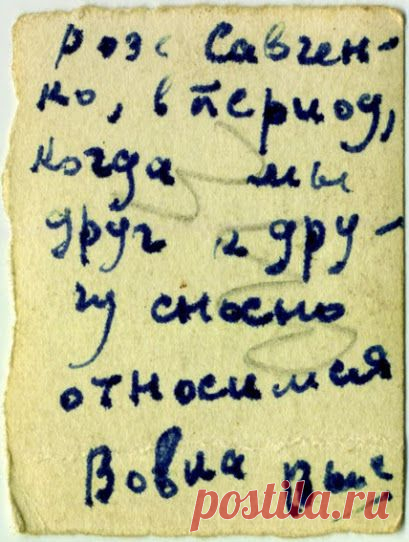 розе Савчен-
ко, в период,
когда мы
друг к дру-
гу сносно
относимся
Вовка Выс
postila.ru